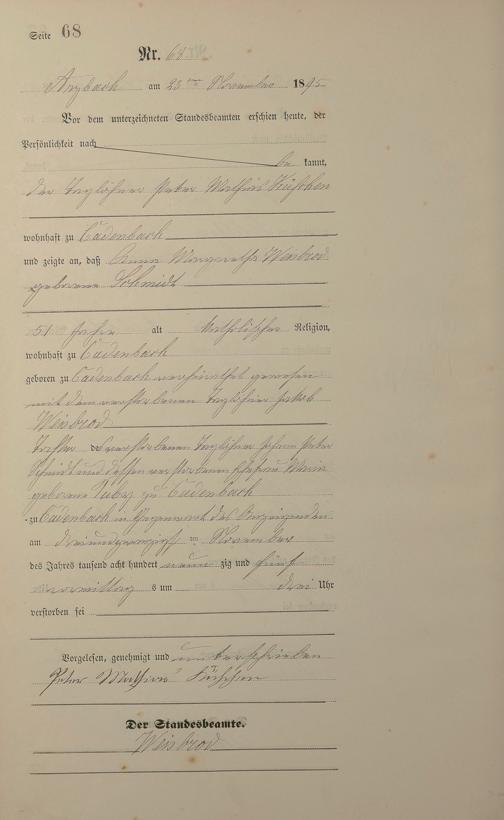 Seite 68
Nr. 68
Arzbach am 23ten November 1895
Vor dem unterzeichneten Standesbeamten erschien heute, der
Persönlichkeit nach
be kannt,
der Taglöhner Peter Mathias
wohnhaft zu Cadenbach
und zeigte an, daß Anna Margaretha Weisbrod
geborene Schmidt
51 Jahre alt katholischer Religion,
wohnhaft zu Cadenbach
geboren zu Cadenbach verheirathet gewesen
mit dem verstorbenen Taglöhner Jakob
Weisbrod
Tochter des verstorbenen Taglöhner Johann Peter
Schmidt und dessen verstorbenen Ehefrau
geborene zu Cadenbach
zu Cadenbach in Gegenwart des Anzeigenden
am dreiundzwanzigsten November
des Jahres tausend acht hundert neun zig und fünf
vormittag s um drei Uhr
verstorben sei
Vorgelesen, genehmigt und unterschrieben
Peter Mathias
Der Standesbeamte.
Weisbrod